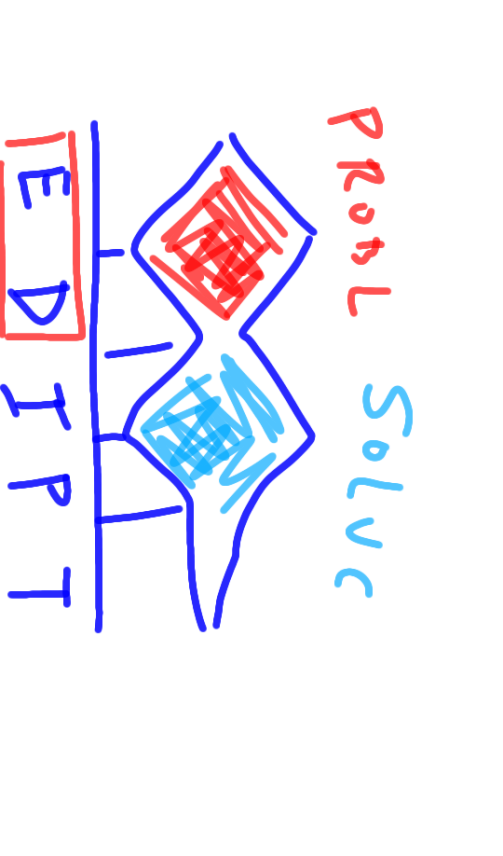 PROBL SOLUC
E D I P T